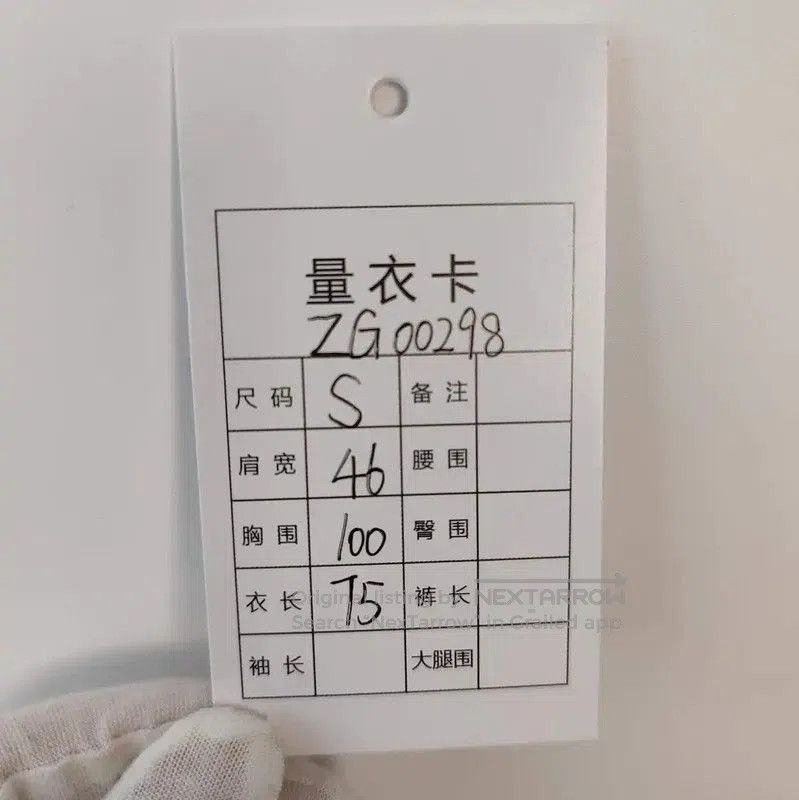 量衣卡
ZG00298
尺码 S 备注
肩宽 46 腰围
胸围 100 臀围
衣长 75 裤长
袖长 大腿围
Original listing by NEXTARROW
Search "NexTarrow" in Grailed app